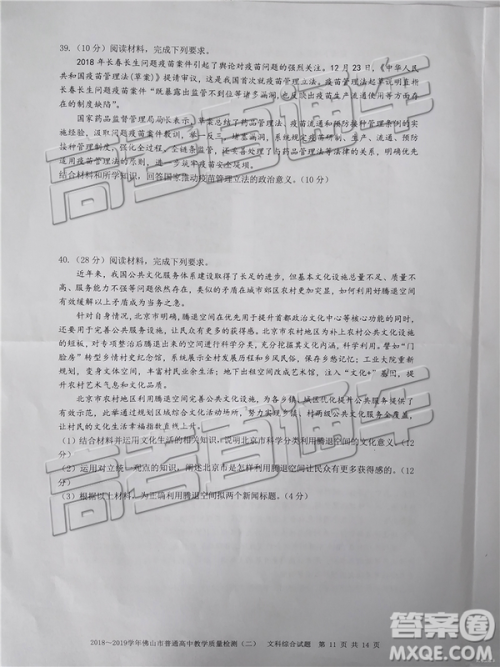 39.（10 分）阅读材料，完成下列要求。
2018 年长春长生问题疫苗案件引起了舆论对疫苗问题的强烈关注。12 月 23 日，《中华人民
共和国疫苗管理法(草案)》提请审议，这是我国首次就疫苗管理立法。草案起草说明直指
长春长生问题疫苗案件“既暴露出监管不到位等诸多漏洞，也反映出疫苗生产流通使用等方面存
在的制度缺陷”。
国家药品监督管理局局长表示，草案总结了药品管理法、疫苗流通和预防接种管理条例的实
施经验，汲取问题疫苗案件教训，举一反三，堵塞漏洞，系统规定疫苗研制、生产、流通、预防
接种管理制度，强化全过程、全链条监管，同时处理好与药品管理法等法律的关系，明确优先
适用疫苗法的原则，进一步筑牢疫苗安全防线。
结合材料和所学知识，回答国家推动疫苗管理立法的政治意义。（10 分）
40.（28 分）阅读材料，完成下列要求。
近年来，我国公共文化服务体系建设取得了长足的进步，但基本文化设施总量不足、质量不
高、服务能力不强等问题依然存在，类似的矛盾在城市郊区农村更加突显，如何利用好腾退空间
有效缓解以上矛盾成为当务之急。
针对自身情况，北京市明确，腾退空间在优先用于提升首都政治文化中心等核心功能的同时，
要大力完善公共服务设施，让民众有更多的获得感。北京市农村地区为补上农村公共文化设施
的短板，对专项整治后腾退出来的空间进行科学分类，充分挖掘文化内涵，科学利用。譬如“门
脸房”转型乡情村史纪念馆，系统展示全村发展历程和乡风民俗，保存乡愁记忆；工业大院重新
规划，变身文化休闲空间，丰富村民业余生活；地下出租空间改成艺术馆，注入“文化+”基因，提
升农村艺术气息和文化品质。
北京市农村地区利用腾退空间完善公共文化设施，为各乡镇、城区优化提升公共服务提供了
有效示范，此举通过规划区域综合文化活动场所，实现区级有场馆，乡镇有场地，村两级公共文化设施全覆盖，让
农村真正美起来、文化真正活起来。
（1）结合材料并运用文化生活的相关知识，说明北京市科学分类利用腾退空间的文化意义。（12
分）
（2）运用对立统一观点的知识，阐述北京市是怎样利用腾退空间让民众有更多获得感的。（12
分）
（3）根据以上材料，为正确利用腾退空间拟两个新闻标题。（4 分）
高考直通车
高考直通车
2018～2019学年佛山市普通高中教学质量检测（二） 文科综合试题 第 11 页 共 14 页
答案圈
www.daanquan.com